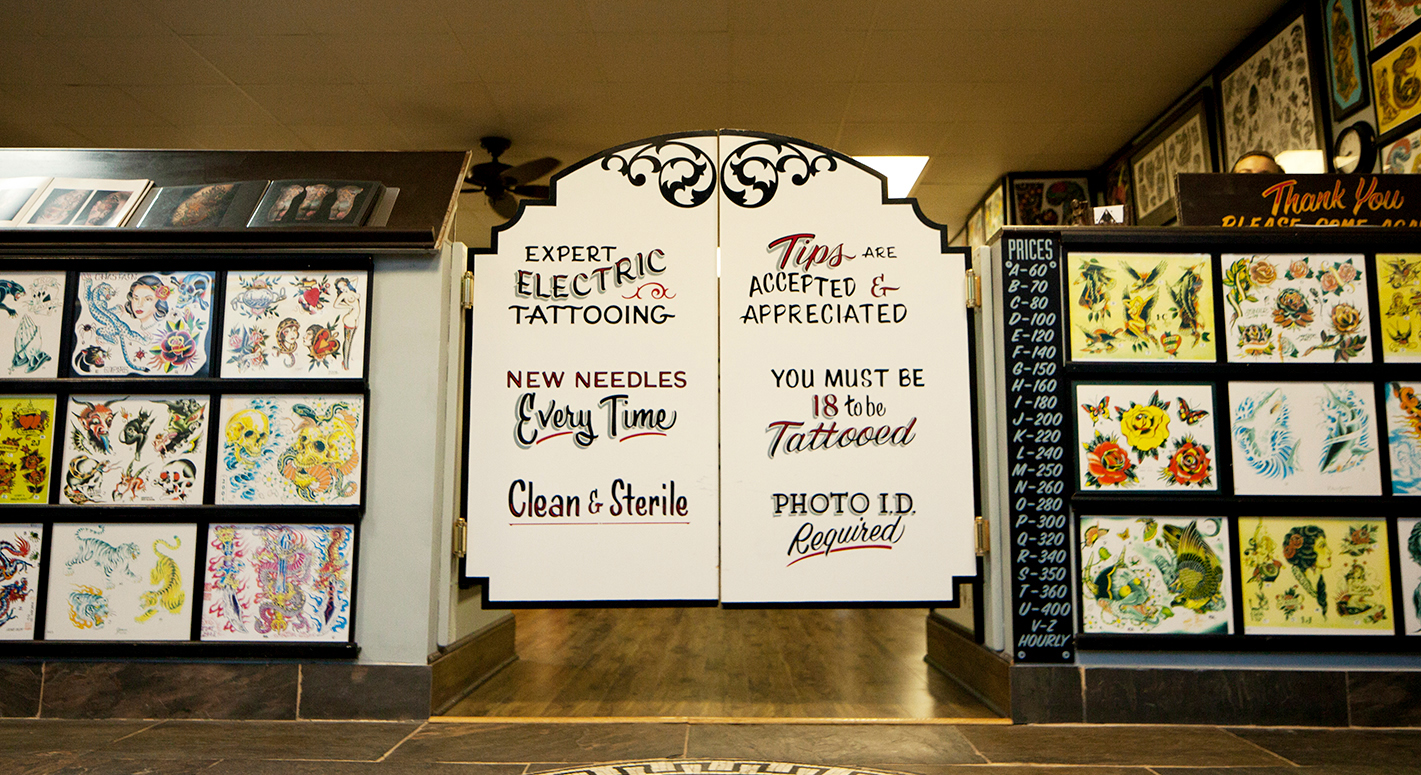 EXPERT
ELECTRIC
TATTOOING
NEW NEEDLES
Every Time
Clean & Sterile
Tips ARE
ACCEPTED &
APPRECIATED
YOU MUST BE
18 to be
Tattooed
PHOTO I.D.
Required
PRICES
A-60
B-70
C-80
D-100
E-120
F-140
G-150
H-160
I-180
J-200
K-220
L-240
M-250
N-260
O-280
P-300
Q-320
R-340
S-350
T-360
U-400
V-Z
HOURLY
Thank You
PLEASE COME